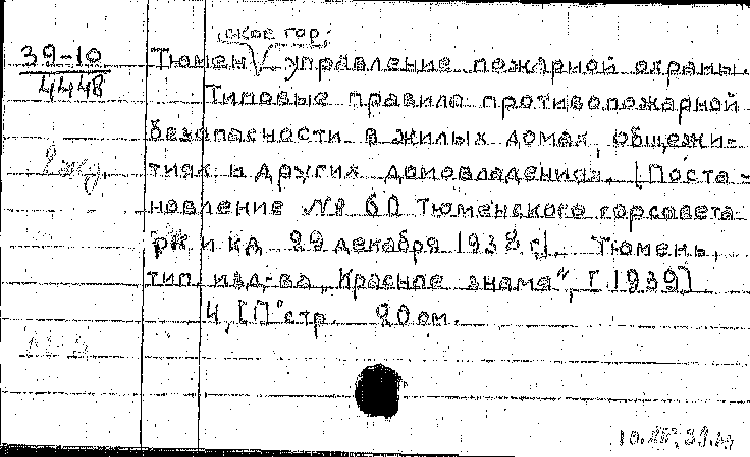 ское гор.
39-10 Тюмен управление пожарной охраны.
4448 Типовые правила противопожарной
безопасности в жилых домах, общежи-
тиях и других домовладениях. [Поста-
новление № 60 Тюменского горсовета
РК и КД 29 декабря 1938 г]. Тюмень,
тип. изд-ва "Красное знамя", [1939]
4, [1] стр. 20 см.